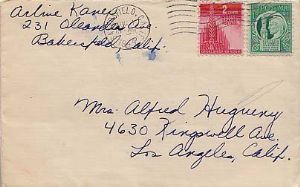 Arline Kanes
231 Oleander Ave.
Bakersfield, Calif.
2 CENTS
Mrs. Alfred Hugueny
4630 Kingswell Ave.
Los Angeles, Calif.